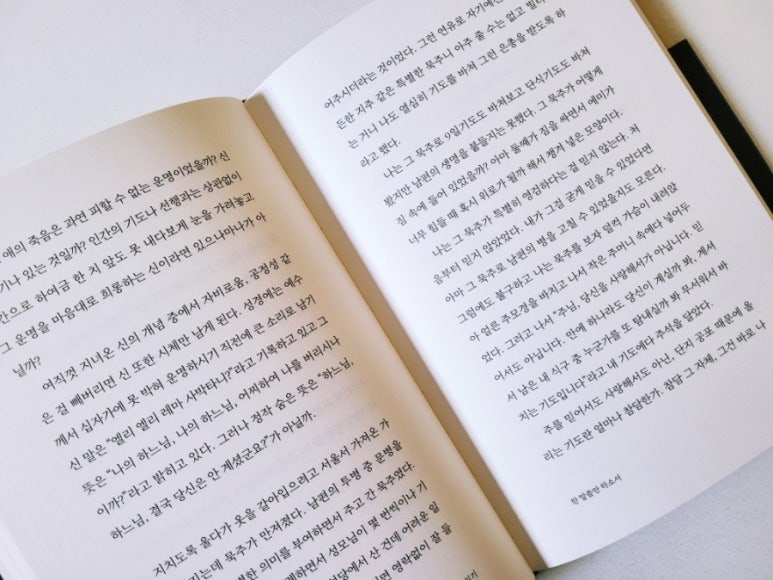 애의 죽음은 과연 피할 수 없는 운명이었을까? 신
기나 있는 것일까? 인간의 기도나 선행과는 상관없이
간으로 하여금 한 치 앞도 못 내다보게 눈을 가려놓고
그 운명을 마음대로 희롱하는 신이라면 있으나마나가 아
닐까?
여직껏 지녀온 신의 개념 중에서 자비로움, 공정성 같
은 걸 빼버리면 신 또한 시체만 남게 된다. 성경에는 예수
께서 십자가에 못 박혀 운명하시기 직전에 큰 소리로 남기
신 말은 “엘리 엘리 레마 사박타니?”라고 기록하고 있고 그
뜻은 “나의 하느님, 나의 하느님, 어찌하여 나를 버리시나
이까?”라고 밝히고 있다. 그러나 정작 숨은 뜻은 “하느님,
하느님, 결국 당신은 안 계셨군요?”가 아닐까.
지치도록 울다가 옷을 갈아입으려고 서울서 가져온 가
는데 묵주가 만져졌다. 남편의 투병 중 문병을
별한 의미를 부여하면서 주고 간 묵주였다.
례하면서 성모님이 몇 번씩이나 기
당에서 산 건데 어려운 일
면 영락없이 잘 들
어주시더라는 것이었다. 그런 연유로 자기에겐
든한 지주 같은 특별한 묵주니 아주 줄 수는 없고 빌려
는 거니 나도 열심히 기도를 바쳐 그런 은총을 받도록 하
라고 했다.
나는 그 묵주로 9일기도도 바쳐보고 단식기도도 바쳐
봤지만 남편의 생명을 붙들지는 못했다. 그 묵주가 어떻게
짐 속에 들어 있었을까? 아마 둘째가 짐을 싸면서 에미가
너무 힘들 때 혹시 위로가 될까 해서 챙겨 넣은 모양이다.
나는 그 묵주가 특별히 영검하다는 걸 믿지 않는다. 처
음부터 믿지 않았었다. 내가 그걸 굳게 믿을 수 있었다면
아마 그 묵주로 남편의 병을 고칠 수 있었을지도 모른다.
그럼에도 불구하고 나는 묵주를 보자 덜컥 가슴이 내려앉
아 얼른 주모경을 바치고 나서 작은 주머니 속에다 넣어두
었다. 그러고 나서 “주님, 당신을 사랑해서가 아닙니다. 믿
어서도 아닙니다. 만에 하나라도 당신이 계실까 봐, 계셔
서 남은 내 식구 중 누군가를 또 탐내실까 봐 무서워서 바
치는 기도입니다”라고 내 기도에다 주석을 달았다.
주를 믿어서도 사랑해서도 아닌, 단지 공포 때문에 올
리는 기도란 얼마나 참담한가. 참담 그 자체, 그건 바로 나
한 말씀만 하소서